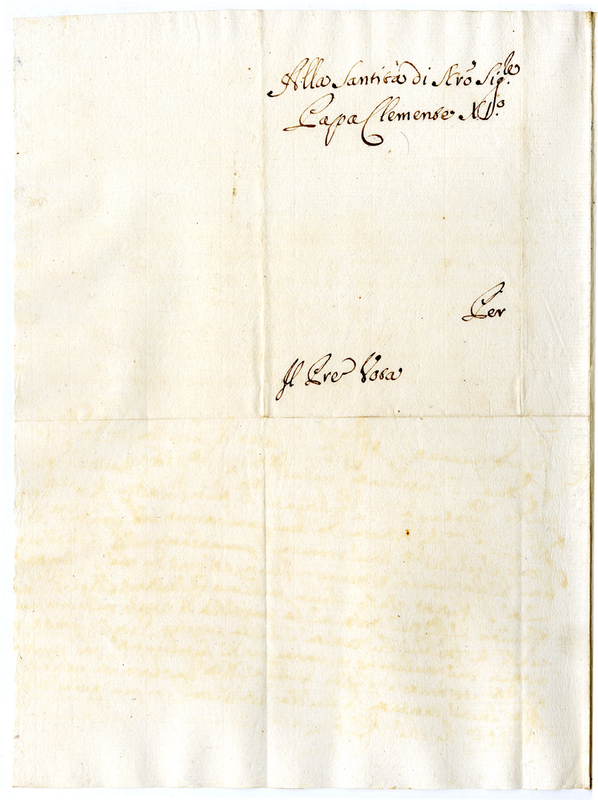 Alla Santità di Nro Sigre
Papa Clemente XI.º
Per
Il Pre Vota